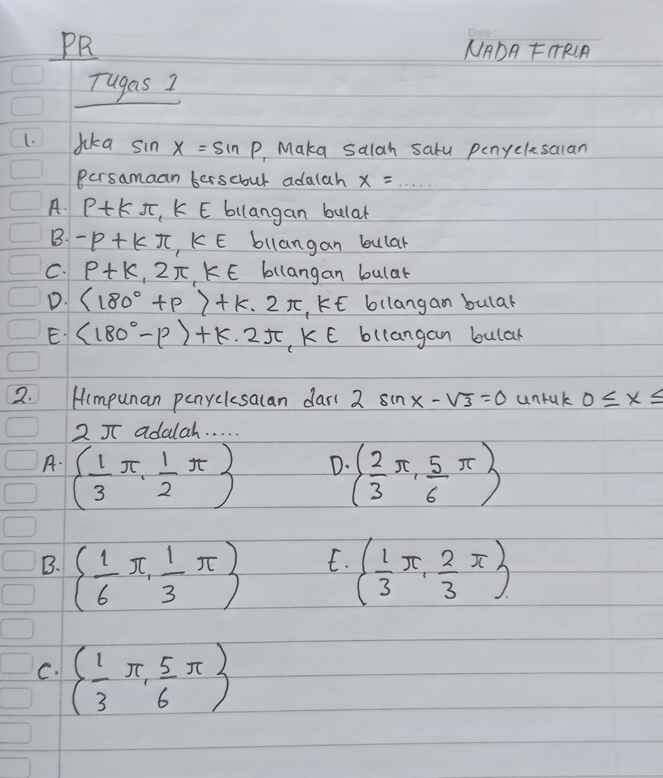 PR
Date:
NADA FITRIA
Tugas 1
1. Jika sin x = sin p, Maka salah satu penyelesaian
persamaan tersebut adalah x = ......
A. P+k π, k E bilangan bulat
B. -p + k π, k E bilangan bulat
C. P+k, 2π, k E bilangan bulat
D. (180° + p) + k. 2 π, k E bilangan bulat
E. (180° - p) + k. 2π, k E bilangan bulat
2. Himpunan penyelesaian dari 2 sin x - √3 = 0 untuk 0 ≤ x ≤
2 π adalah.....
A. {1/3 π, 1/2 π}
D. {2/3 π, 5/6 π}
B. {1/6 π, 1/3 π}
E. {1/3 π, 2/3 π}.
C. {1/3 π, 5/6 π}